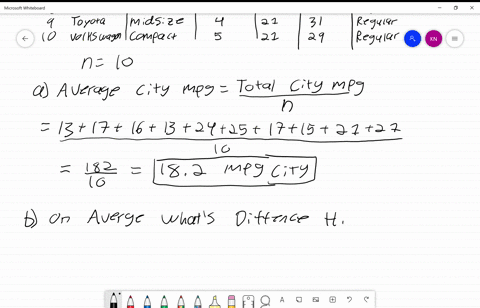 Microsoft Whiteboard
9 Toyota Midsize 4 21 31 Regular
10 Volkswagon Compact 5 21 29 Regular
KN
n = 10
a) Average city mpg = Total City mpg / n
= 13 + 17 + 16 + 13 + 24 + 25 + 17 + 15 + 21 + 21 / 10
= 182 / 10 = 18.2 mpg city
b) on Averge what's Diffence H.